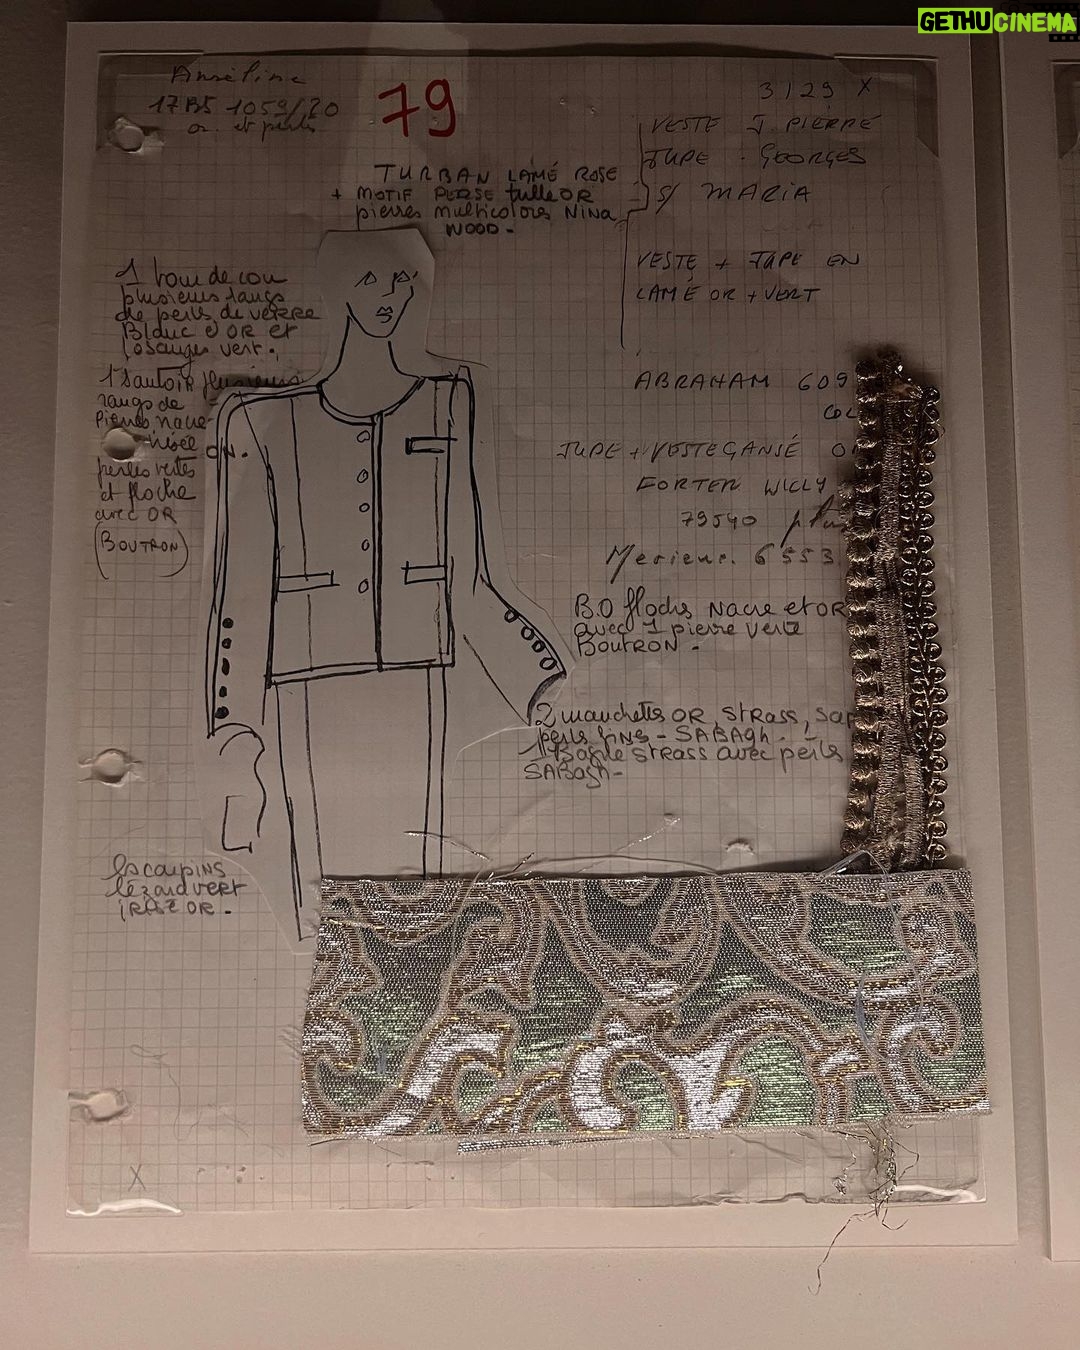 GETHUCINEMA
79
3129 X
VESTE J. PIERRE
JUPE - GEORGES
S/ MARIA
TURBAN LAMÉ ROSE
+ MOTIF PERSE tulle OR
pierres multicolors NINA
WOOD -
VESTE + JUPE EN
LAMÉ OR + VERT
1 tour de cou
plusieurs rangs
de perls de verre
Blanc d'OR et
losanges vert.
1 Sautoir plusieurs
rangs de
Pierres nacre
perles vertes
et floche
avec OR
(BOUTRON)
ABRAHAM 609
COL
JUPE + VESTE GANSÉ O
FORTER WILLY
79540
6553
B.O flochs Nacre et OR
avec 1 pierre verte
BOUTRON -
2 manchettes OR, STRASS,
perls fins - SABAGH.
1 Bague STRASS avec perls
SABAGH -
Escarpins
lézard vert
irisé OR -
X